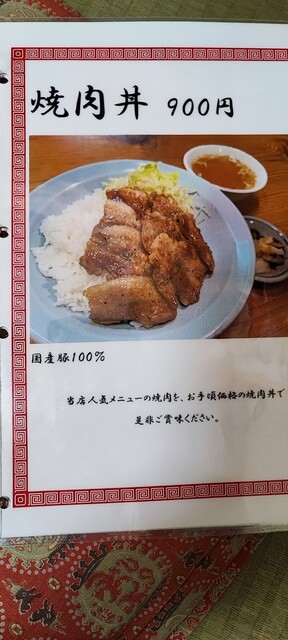 焼肉丼 900円
国産豚100%
当店人気メニューの焼肉を、お手頃価格の焼肉丼で
是非ご賞味ください。